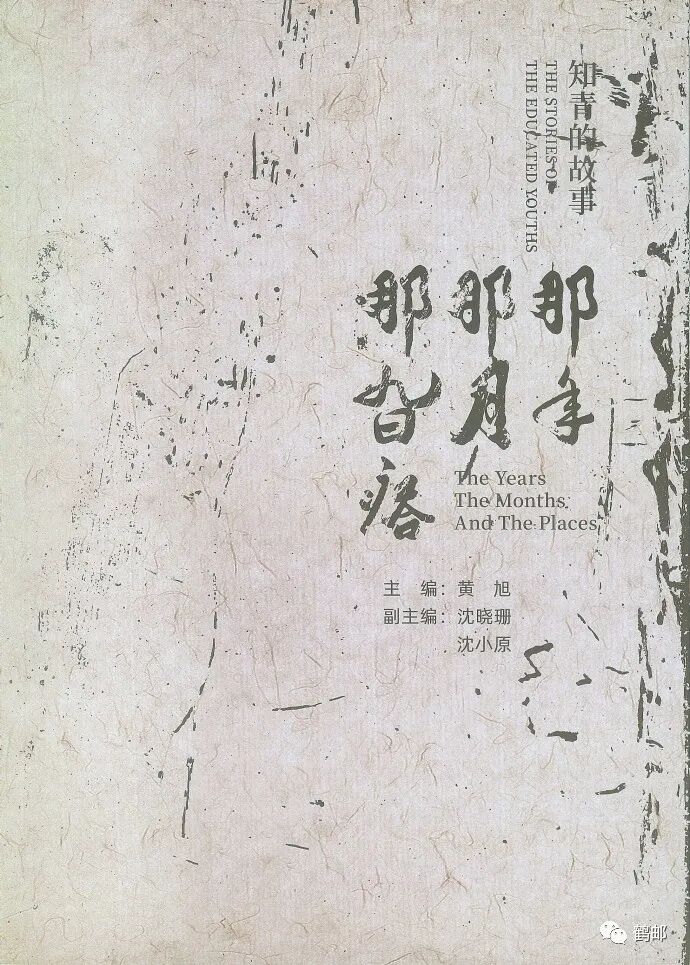 知青的故事
THE STORIES OF
THE EDUCATED YOUTHS
那年
那月
那旮瘩
The Years
The Months
And The Places
主 编：黄 旭
副主编：沈晓珊
沈小原
鹤邮